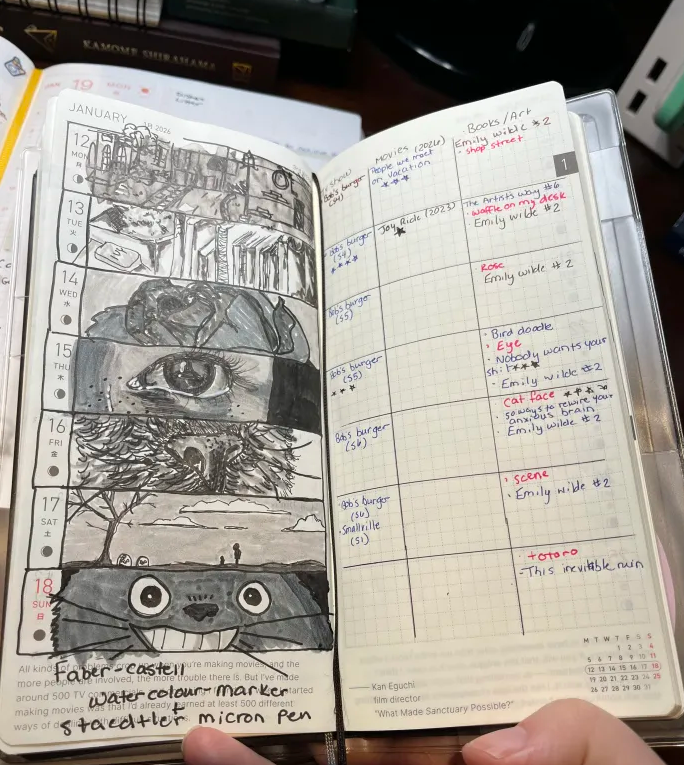 KAMOME SHIRAHAMA
JAN 19 MON
JANUARY 2026
12
MON
月
13
TUE
火
14
WED
水
15
THU
木
16
FRI
金
17
SAT
土
18
SUN
日
All kinds of you're making movies, and the
more people are involved, the more trouble there is. But I've made
around 500 TV started
making movies was that I'd already made at least 500 different
ways of
Faber-castell
watercolour-marker
staedtler micron pen
show
Movies (2026)
Books/Art
1
Bob's burger
(S4)
People we meet
on vacation
★★★
Emily wilde #2
• shop street
Bob's burger
(S4)
★★★★
Joy Ride (2023)
★
The Artists way #6
• waffle on my desk
Emily wilde #2
Bob's burger
(S5)
Rose
Emily wilde #2
Bob's burger
(S5)
★★★
• Bird doodle
• Eye
• Nobody wants your
sh:t ★★★
• Emily wilde #2
Bob's burger
(S6)
cat face ★★★
50 ways to rewire your
anxious brain
• Emily wilde #2
• Bob's burger
(S6)
• Smallville
(S1)
• scene
• Emily wilde #2
• totoro
- This inevitable ruin
— Kan Eguchi
film director
"What Made Sanctuary Possible?"
M T W T F S S
1 2 3 4
5 6 7 8 9 10 11
12 13 14 15 16 17 18
19 20 21 22 23 24 25
26 27 28 29 30 31